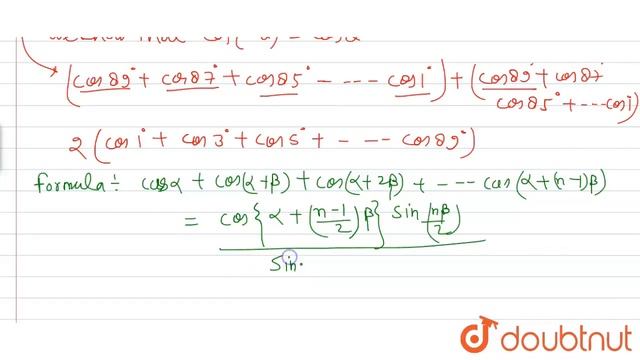 we know that cos(-α) = cosα
(cos89° + cos87° + cos85° - --- cos1°) + (cos89° + cos87°
cos85° + --- cos1)
2 (cos1° + cos3° + cos5° + - --- cos89°)
formula ÷ cosα + cos(α+β) + cos(α+2β) + --- cos(α+(n-1)β)
= cos{α + (n-1/2)β} sin(nβ/2)
Sin.
doubtnut